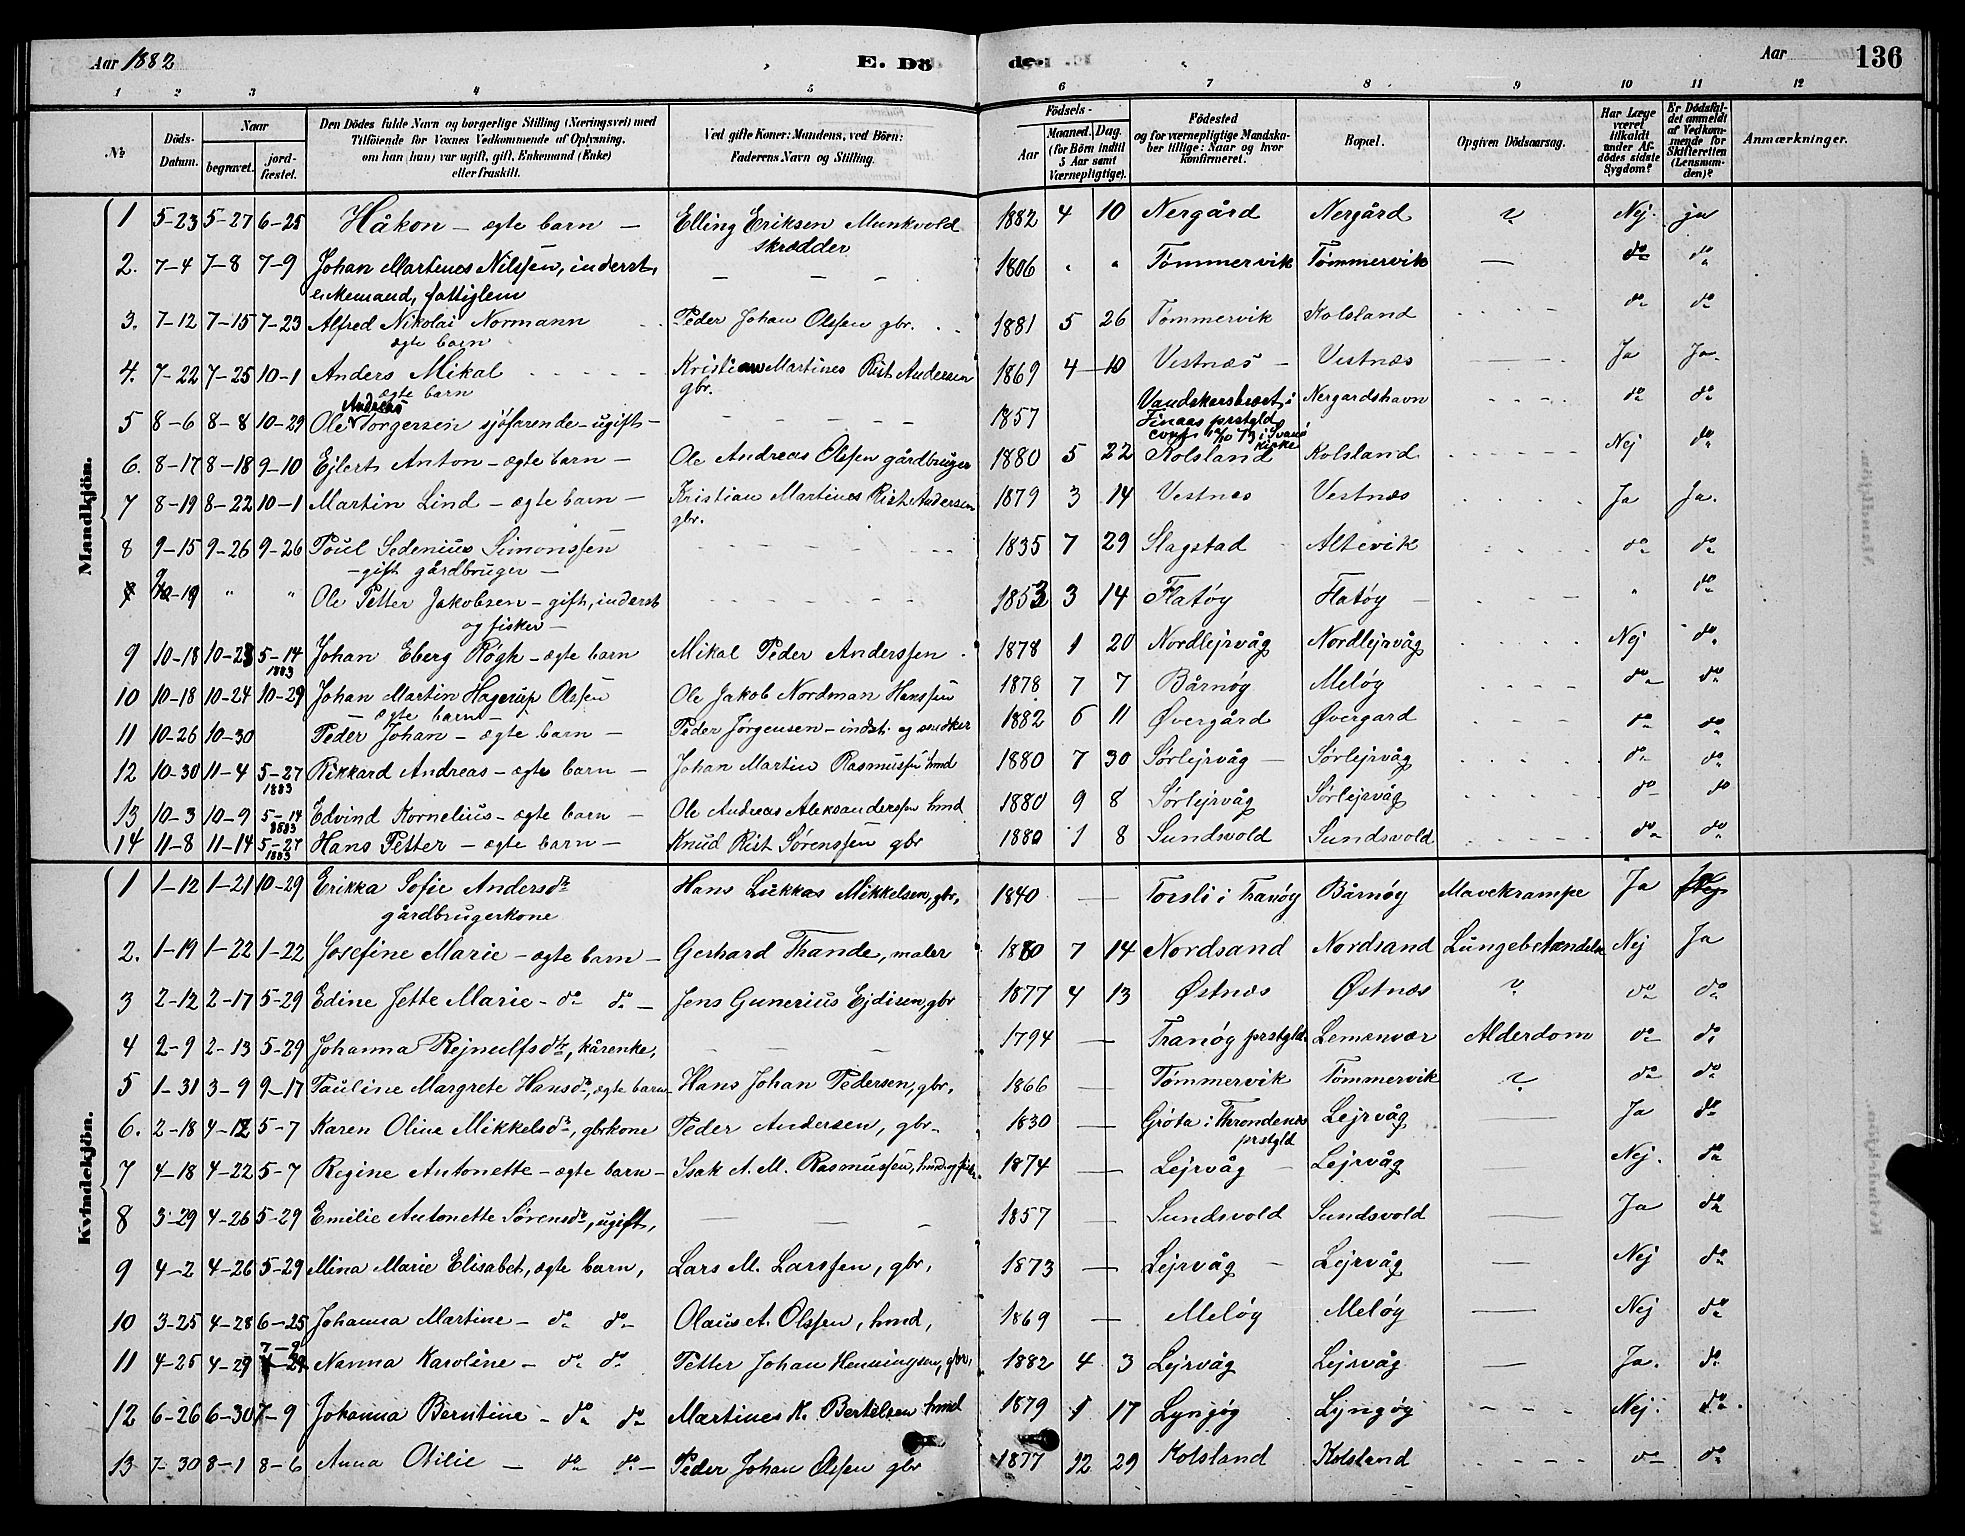 Aar 1882 E. Dö de. Aar 136
1 2 3 4 5 6 7 8 9 10 11 12
№ Döds-Datum. Naar begravet. jord-fæstet. Den Dödes fulde Navn og borgerlige Stilling (Næringsvei) med Tilföiende for Voxnes Vedkommende af Oplysning, om han (hun) var ugift, gift, Enkemand (Enke) eller fraskilt. Ved gifte Koner: Mandens, ved Börn: Faderens Navn og Stilling. Födsels- Aar Maaned. Dag. (for Börn indtil 5 Aar samt Værnepligtige). Födested og for værnepligtige Mandskaber tillige: Naar og hvor konfirmeret. Bopæl. Opgiven Dödsaarsag. Har Læge været tilkaldt under Afdödes sidste Sygdom? Er Dödsfaldet anmeldt af Vedkommende for Skifteretten (Lensmanden)? Anmærkninger.
Mandkjön.
1 5-23 5-27 6-25 Håkon - ægte barn - Elling Eriksen Munkvold skrædder 1882 4 10 Nergård Nergård ? Nej. ja
2. 7-4 7-8 7-9 Johan Martines Nilssen, inderst, enkemand, fattiglem — — — 1806 " " Tømmervik Tømmervik — do do
3. 7-12 7-15 7-23 Alfred Nikolai Normann ægte barn Peder Johan Olssen gbr. 1881 5 26 Tømmervik Kolsland do do
4. 7-22 7-25 10-1 Anders Mikal ægte barn Kristian Martines Rist Andersen gbr. 1869 4-10 Vestnæs - Vestnæs Ja Ja.
5 8-6 8-8 10-29 Ole Andreas Torgersen sjøfarende - ugift - 1857 i Finaas prstgld Kirke Nergardshavn do do
6. 8-17 8-18 9-10 Ejlert Anton - ægte barn - Ole Andreas Olssen gårdbruger 1880 5 22 Kolsland Kolsland Nej do
7 8-19 8-22 10-1 Martin Lind - ægte barn - Kristian Martines Rist Andersen gbr. 1879 3 14 Vestnæs Vestnæs Ja Ja.
8 9-15 9-26 9-26 Poul Sedenius Simonssen - gift gårdbruger - 1835 7 29 Slagstad Altevik do do
9-19 " " Ole Petter Jakobsen - gift, inderst og fisker - 1853 3 14 Flatøy Flatøy " do
9 10-18 10-23 5-14 1883 Johan Eberg Røgh - ægte barn Mikal Peder Anderssen 1878 1 20 Nordlejrvåg Nordlejrvåg Nej do
10 10-18 10-24 10-29 Johan Martin Hagerup Olssen - ægte barn - Ole Jakob Nordman Hanssen 1878 7 7 Bårnøy Meløy do do
11 10-26 10-30 Peder Johan - ægte barn - Peder Jørgensen - indst. og snedker 1882 6 11 Øvergård Øvergard do do
12 10-30 11-4 5-27 1883 Rikkard Andreas - ægte barn - Johan Martin Rasmussen hmd 1880 7 30 Sørlejrvåg - Sørlejrvåg do do
13 10-3 10-9 5-14 1883 Edvind Kornelius - ægte barn - Ole Andreas Aleksanderssen hmd. 1880 9 8 Sørlejrvåg Sørlejrvåg do do
14 11-8 11-14 5-27 1883 Hans Petter - ægte barn - Knud Rist Sørenssen gbr 1880 1 8 Sundsvold Sundsvold do do
Kvindekjön.
1 1-12 1-21 10-29 Erikka Sofie Andersdtr gårdbrugerkone Hans Lukkas Mikkelsen, gbr, 1840 — Torsli i Tranøy Bårnøy Mavekrampe Ja
2. 1-19 1-22 1-22 Josefine Marie - ægte barn - Gerhard Thande, maler 1880 7 14 Nordsand Nordsand Lungebetændelse Nej Ja
3 2-12 2-17 5-29 Edine Jette Marie - do do - Jens Gunerius Ejdisen, gbr 1877 4 13 Østnæs Østnæs ? do do
4 2-9 2-13 5-29 Johanna Rejnulfsdtr, kårenke, — — — 1794 — Tranøy prstgld. Lemenvær Alderdom do do
5 1-31 3-9 9-17 Pauline Margrete Hansdtr, ægte barn - Hans Johan Pedersen, gbr, 1866 — Tømmervik Tømmervik ? do do
6. 2-18 4-12 5-7 Karen Oline Mikkelsdtr, gbrkone Peder Andersen, gbr- 1830 — Grøta i Throndenes prstgld Lejrvåg — Ja do
7 4-18 4-22 5-7 Regine Antonette - ægte barn - Isak A. M. Rasmussen, hmd og fisk. 1874 — Lejrvåg - Lejrvåg Nej. do
8 3-29 4-26 5-29 Emilie Antonette Sørensdtr, ugift, — — — 1857 — Sundsvold Sundsvold — Ja do
9 4-2 4-26 5-29 Mina Marie Elisabet, ægte barn, Lars M. Larssen, gbr, 1873 — Lejrvåg - Lejrvåg — Nej do
10 3-25 4-28 6-25 Johanna Martine - do do - Olaus A. Olssen, hmd, 1869 — Meløy Meløy — Nej do
11 4-25 4-29 7-9 Nanna Karoline - do do Petter Johan Henningsen, gbr, 1882 4 3 Lejrvåg Lejrvåg — Ja. do
12 6-26 6-30 7-9 Johanna Berntine - do do Martines K. Bertelsen hmd 1879 1 17 Lyngøy Lyngøy Nej. do
13 7-30 8-1 8-6 Anna Otilie - do do - Peder Johan Olssen gbr 1877 12 29 Kolsland Kolsland do do